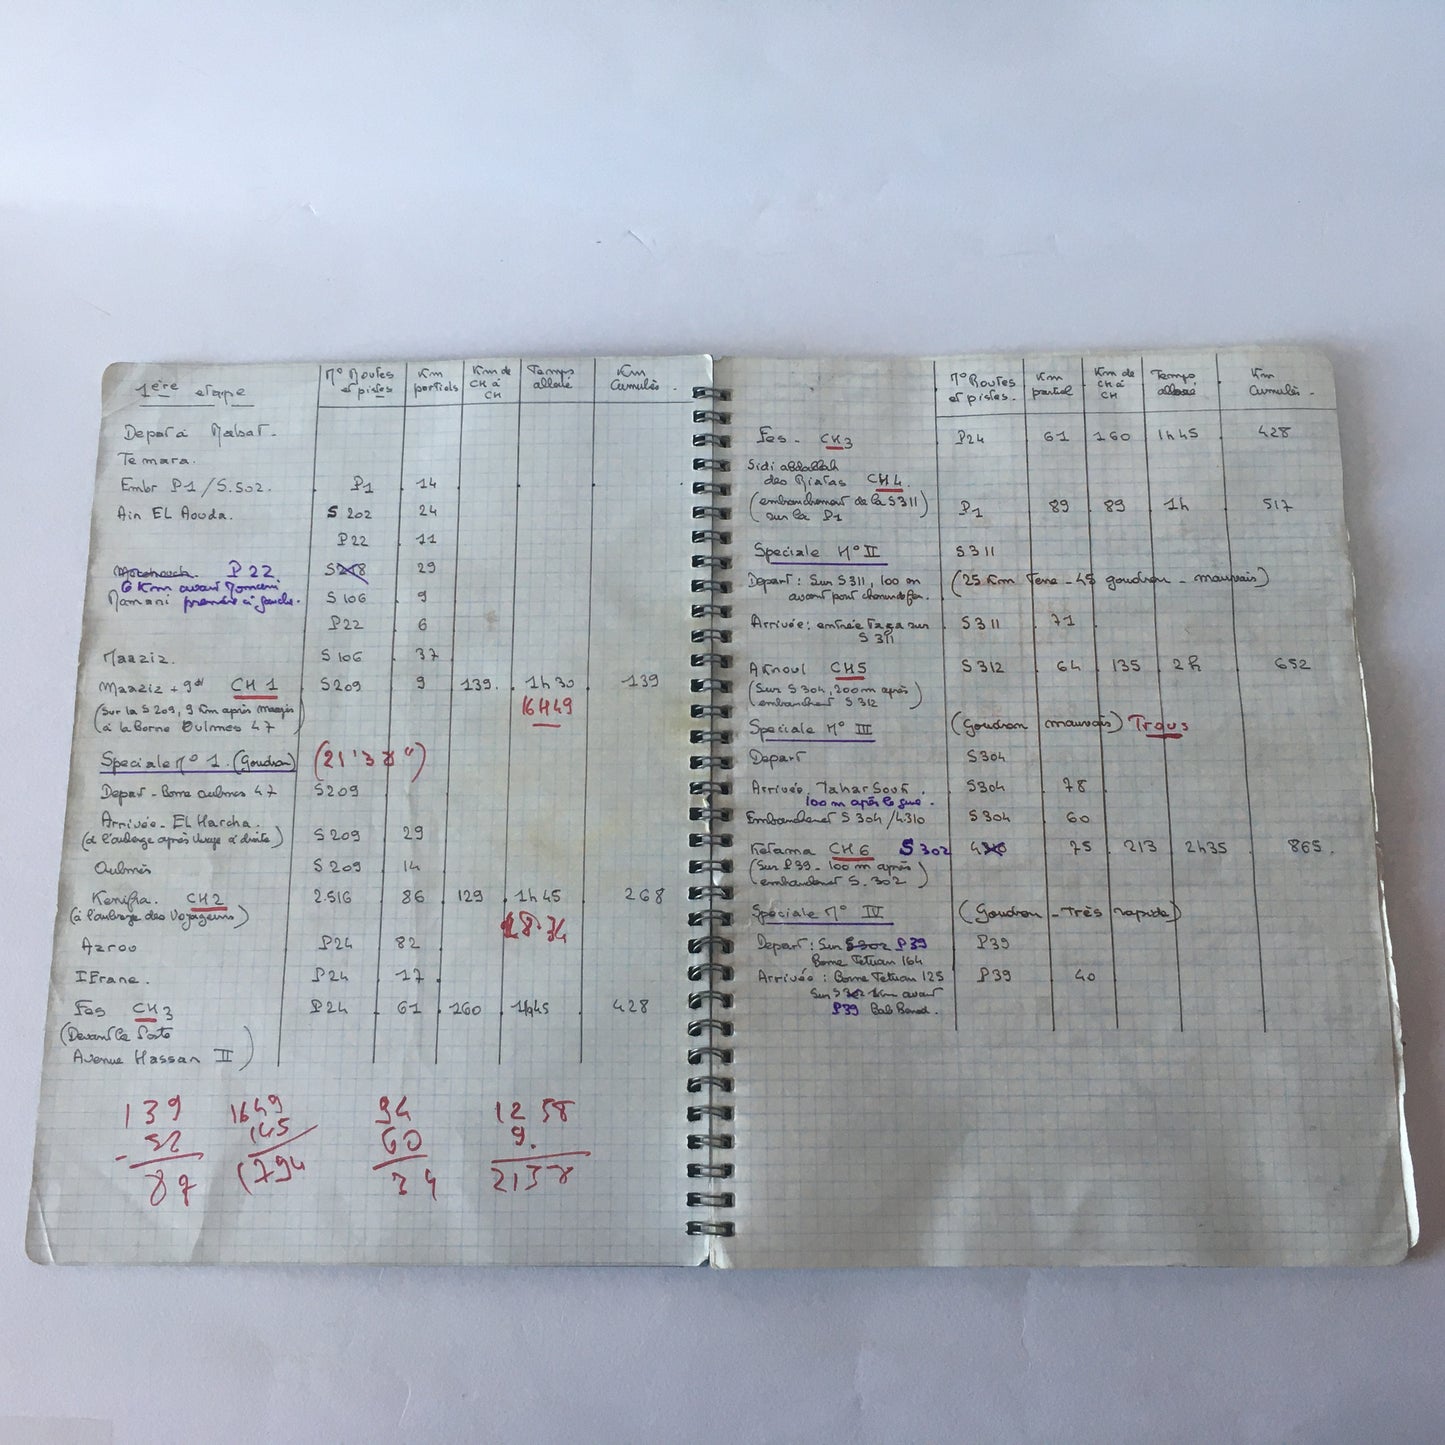 1ère etape N° Routes et pistes Km partiels Km de CH à CH Temps alloué Km Cumulés.
Depart à Rabat.
Temara.
Embr P1/S.202. P1 14
Ain EL Aouda. S 202 24
P22 11
P22 S218 29
6 Km avant Romani
Romani prendre à gauche. S 106 9
P22 6
Maaziz. S 106 37
Maaziz + 9 CH 1 S209 9 139. 1h30 139
(Sur la S 209, 9 Km après Maaziz 16H49
(à la Borne Oulmes 47)
Speciale N° 1. (Goudron) (21'38")
Depart - Borne Oulmes 47 S209
Arrivée - El Harcha.
(à l'auberge après virage à droite) S 209 29
Oulmès S 209 14
Kenifra. CH2 2.516 86 129 1h45 268
(à l'auberge des Voyageurs) 18.34
Azrou P24 82
IFrane. P24 17
Fes CH3 P24 61 160 1h45 428
(Devant la Poste
Avenue Hassan II)
139 1649 94 1258
- 52 145 60 9.
87 1794 34 2138
N° Routes et pistes. Km partiel Km de CH à CH Temps alloué Km Cumulés.
Fes - CH3 P24 61 160 1h45 428
Sidi abdallah
des Riatas CH4.
(embranchement de la S311)
sur la P1 P1 89 89 1h 517
Speciale N° II S311
Depart: Sur S311, 100 m (25 Km Terre - 45 goudron - mauvais)
avant pont chemin de fer.
Arrivée: entrée Taza sur S311 71
S311
AKnoul CH5 S312 64 135 2h 652
(Sur S304, 200m après)
(embranchet S312
Speciale N° III (Goudron mauvais) Trous
Depart S304
Arrivée. Tahar Souk. S304 78
100 m après le gué.
Embranchenet S304/4310 S304 60
Ketama CH6 S302 4310 75 213 2h35 865.
(Sur P39 - 100 m après)
(embranchenet S.302)
Spéciale N° IV (Goudron - Très rapide)
Depart: Sur S302 P39 P39
Borne Tetuan 164
Arrivée: Borne Tetuan 125 P39 40
Sur S302 1km avant
P39 Bab Berred.